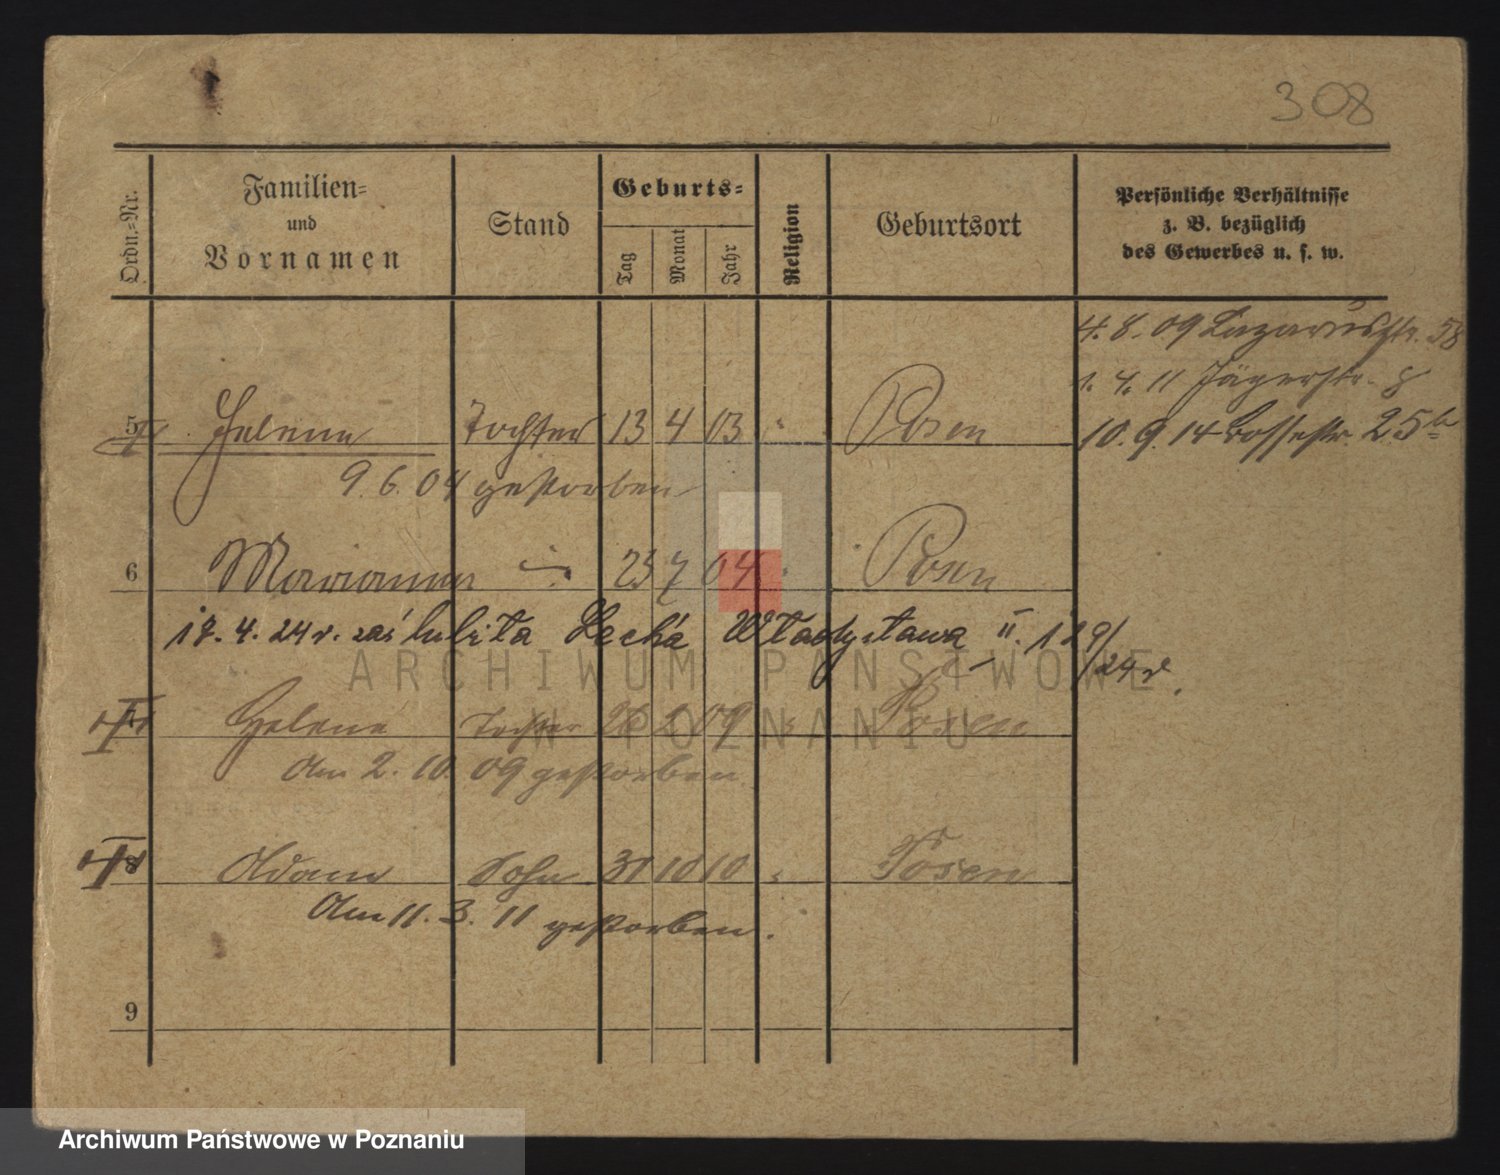 308
Ordn.-Nr.
Familien-
und
Vornamen
Stand
Geburts-
Tag
Monat
Jahr
Religion
Geburtsort
Persönliche Verhältnisse
z. B. bezüglich
des Gewerbes u. s. w.
4. 8. 09 Lazarusstr. 58
1. 4. 11 Jägerstr. 8
10. 9. 14 Bossestr. 25b
5 Helene Tochter 13 4 03 " Posen
9. 6. 04 gestorben
6 Marianna 23 7 04 " Posen
18. 4. 24 r. zaślubiła Lecha Władysława II. 129/
24 r.
7 Helene Tochter 26 2 09 " Posen
Am 2. 10. 09 gestorben
8 Adam Sohn 31 10 10 " Posen
Am 11. 3. 11 gestorben.
9
ARCHIWUM PAŃSTWOWE
W POZNANIU
Archiwum Państwowe w Poznaniu